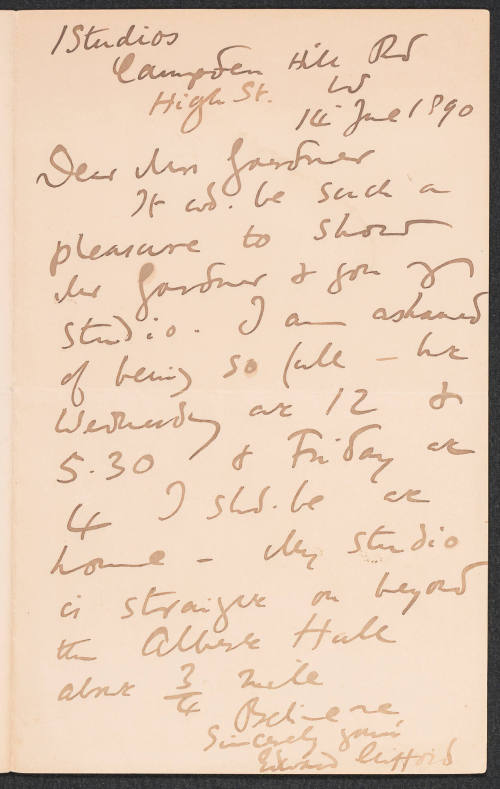 1 Studios
Campden Hill Rd
High St. W
14 June 1890
Dear Mrs Gardner
It wd. be such a
pleasure to show
Mr Gardner & you my
studio. I am ashamed
of being so full – but
Wednesday at 12 &
5.30 & Friday at
4 I shd. be at
home – My studio
is straight on beyond
the Albert Hall
about 3/4 mile
Believe me
Sincerely yours
Edward Clifford